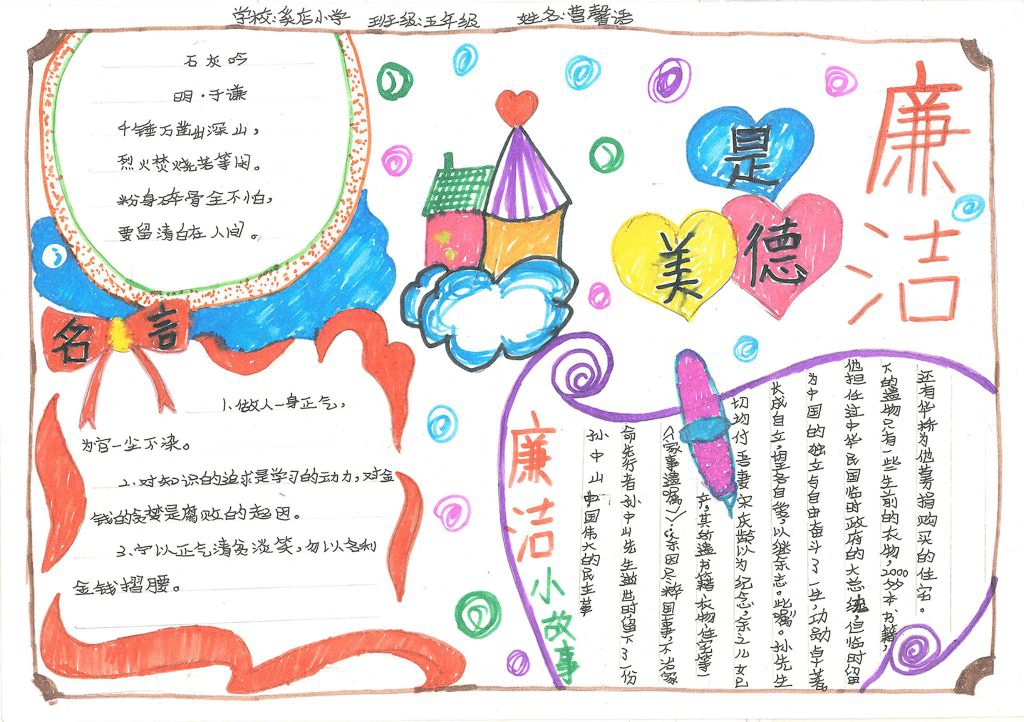 学校: 店小学 班级:五年级 姓名:曹馨语
石灰吟
明·于谦
千锤万凿出深山,
烈火焚烧若等闲。
粉身碎骨全不怕,
要留清白在人间。
廉洁
是
美德
名言
1.做人一身正气,
为官一尘不染。
2.对知识的追求是学习的动力,对金
钱的贪婪是腐败的起因。
3.宁以正气清贫淡笑,勿以名利
金钱摺腰。
廉洁小故事
孙中山中国伟大的民主革
命先行者孙中山先生逝世时留下了一份
《家事遗嘱》:"余因尽瘁国事,不治家
产,其所遗书籍、衣物、住宅等一
切均付吾妻宋庆龄以为纪念,余之儿女已
长成自立,望各自爱,以继余志。此嘱。孙先生
为中国的独立与自由奋斗了一生,功勋卓著。
他担任过中华民国临时政府的大总统,但临时留
下的遗物只有一些生前的衣物,2000多本书籍,
还有华桥为他募捐购买的住宅。